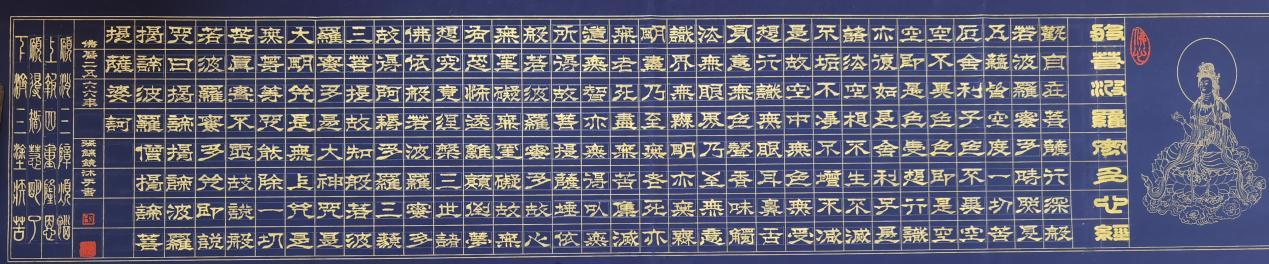 般若波羅蜜多心經
觀自在菩薩行深般
若波羅蜜多時照見
五蘊皆空度一切苦
厄舍利子色不異空
空不異色色即是空
空即是色受想行識
亦復如是舍利子是
諸法空相不生不滅
不垢不淨不增不減
是故空中無色無受
想行識無眼耳鼻舌
身意無色聲香味觸
法無眼界乃至無意
識界無無明亦無無
明盡乃至無老死亦
無老死盡無苦集滅
道無智亦無得以無
所得故菩提薩埵依
般若波羅蜜多故心
無罣礙無罣礙故無
有恐怖遠離顛倒夢
想究竟涅槃三世諸
佛依般若波羅蜜多
故得阿耨多羅三藐
三菩提故知般若波
羅蜜多是大神咒是
大明咒是無上咒是
無等等咒能除一切
苦真實不虛故說般
若波羅蜜多咒即說
咒曰揭諦揭諦波羅
揭諦波羅僧揭諦菩
提薩婆訶
佛曆二五六六年 鏡沐手書
願消三障煩惱
上報四重隆恩
願得智慧明了
下濟三塗苦